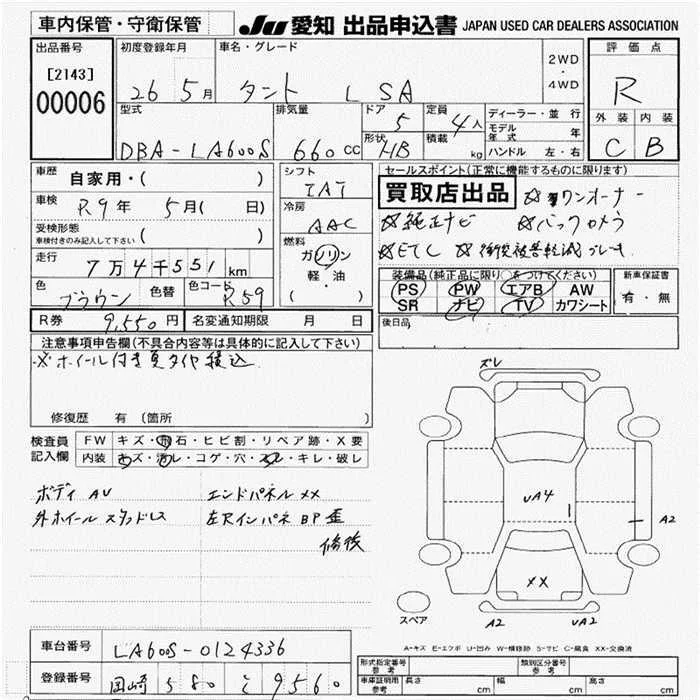 車内保管・守衛保管 JU 愛知 出品申込書 JAPAN USED CAR DEALERS ASSOCIATION
出品番号 初度登録年月 車名・グレード 評価点
[2143] 2WD・4WD
00006 26 5月 タント L SA R
型式 排気量 ドア 定員 ディーラー・並行 外装 内装
5 4人 モデル年式 年
DBA-LA600S 660cc 形状 HB 積載 kg ハンドル 左・右 C B
車歴 自家用・( ) シフト セールスポイント(正常に機能するものに限ります)
IAT 買取店出品 ☆ワンオーナー
車検 R9年 5月( 日) 冷房 ☆純正ナビ ☆バックカメラ
受検形態 AAC
車検付きのみ記入して下さい ( ) 燃料 ☆ETC ☆衝突被害軽減ブレーキ
走行 7万4千551km ガソリン 装備品(純正品に限り○をつけてください) 新車保証書
軽・油 PS PW エアB AW 有・無
色 ブラウン 色替 色コード R59 ( ) SR ナビ TV カワシート
R券 9,550円 名変通知期限 月 日 後日品
注意事項申告欄(不具合内容等は具体的に記入して下さい)
※ホイール付き夏タイヤ積込
ズレ
修復歴 有 (箇所
検査員 FW キズ・飛石・ヒビ割・リペア跡・X要
記入欄 内装 キズ・汚レ・コゲ・穴・スレ・キレ・破レ
ボディ AU エンドパネル XX UA4
外ホイール スタッドレス 左Rインパネ BP 歪 A2
修後
XX
スペア A2 UA2
A-キズ E-エクボ U-凹み W-補修跡 S-サビ C-腐食 XX-交換済
車台番号 LA600S-0124336
形式指定番号 参考 類別区分番号 参考
登録番号 岡崎 580 と 9560
車庫証明用 参考 長さ cm 幅 cm 高さ cm